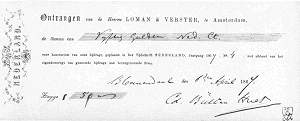 NEDERLAND.
Ontvangen van de Heeren LOMAN & VERSTER, te Amsterdam,
de Somma van Vijftig Gulden Ned. Ct.
voor honorarium van mijne bijdrage, geplaatst in het Tijdschrift NEDERLAND, Jaargang 1867 No. 4, met afstand van het
eigendomsregt van genoemde bijdrage aan bovengenoemde firma.
Bloemendaal April 1867
Zegge f
Cd. Busken Huet